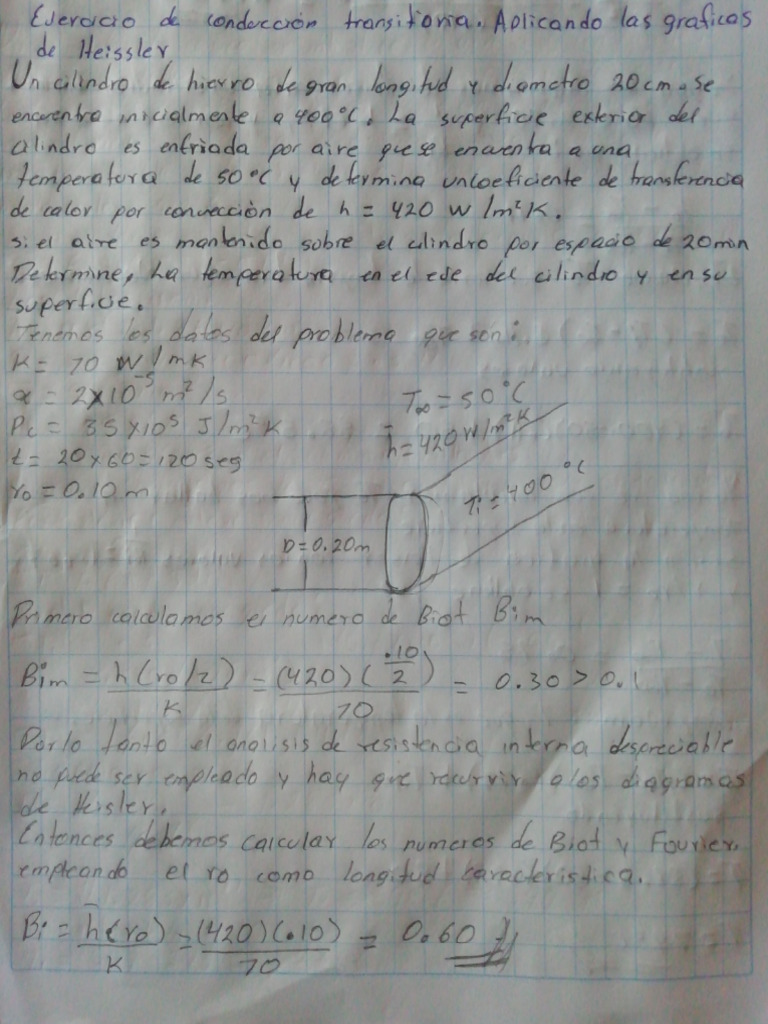 Ejercicio de conducción transitoria. Aplicando las graficas
de Heissler
Un cilindro de hierro de gran longitud y diametro 20cm. se
encuentra inicialmente a 400°C. La superficie exterior del
cilindro es enfriada por aire que se encuentra a una
temperatura de 50°C y determina un coeficiente de transferencia
de calor por convección de h = 420 W/m²K.
si el aire es mantenido sobre el cilindro por espacio de 20min
Determine, La temperatura en el eje del cilindro y en su
superficie.
Tenemos los datos del problema que son:
K = 70 W/mK
α = 2×10⁻⁵ m²/s
Pc = 35×10⁵ J/m²K
t = 20×60 = 120 seg
ro = 0.10 m
T∞ = 50°C
h̄ = 420 W/m²K
Ti = 400 °C
D = 0.20m
Primero calculamos el numero de Biot Bim
Bim = h(ro/2)/K = (420)(.10/2)/70 = 0.30 > 0.1
Por lo tanto el analisis de resistencia interna despreciable
no puede ser empleado y hay que recurrir a los diagramas
de Heisler.
Entonces debemos calcular los numeros de Biot y Fourier,
empleando el ro como longitud caracteristica.
Bi = h̄(ro)/K = (420)(.10)/70 = 0.60